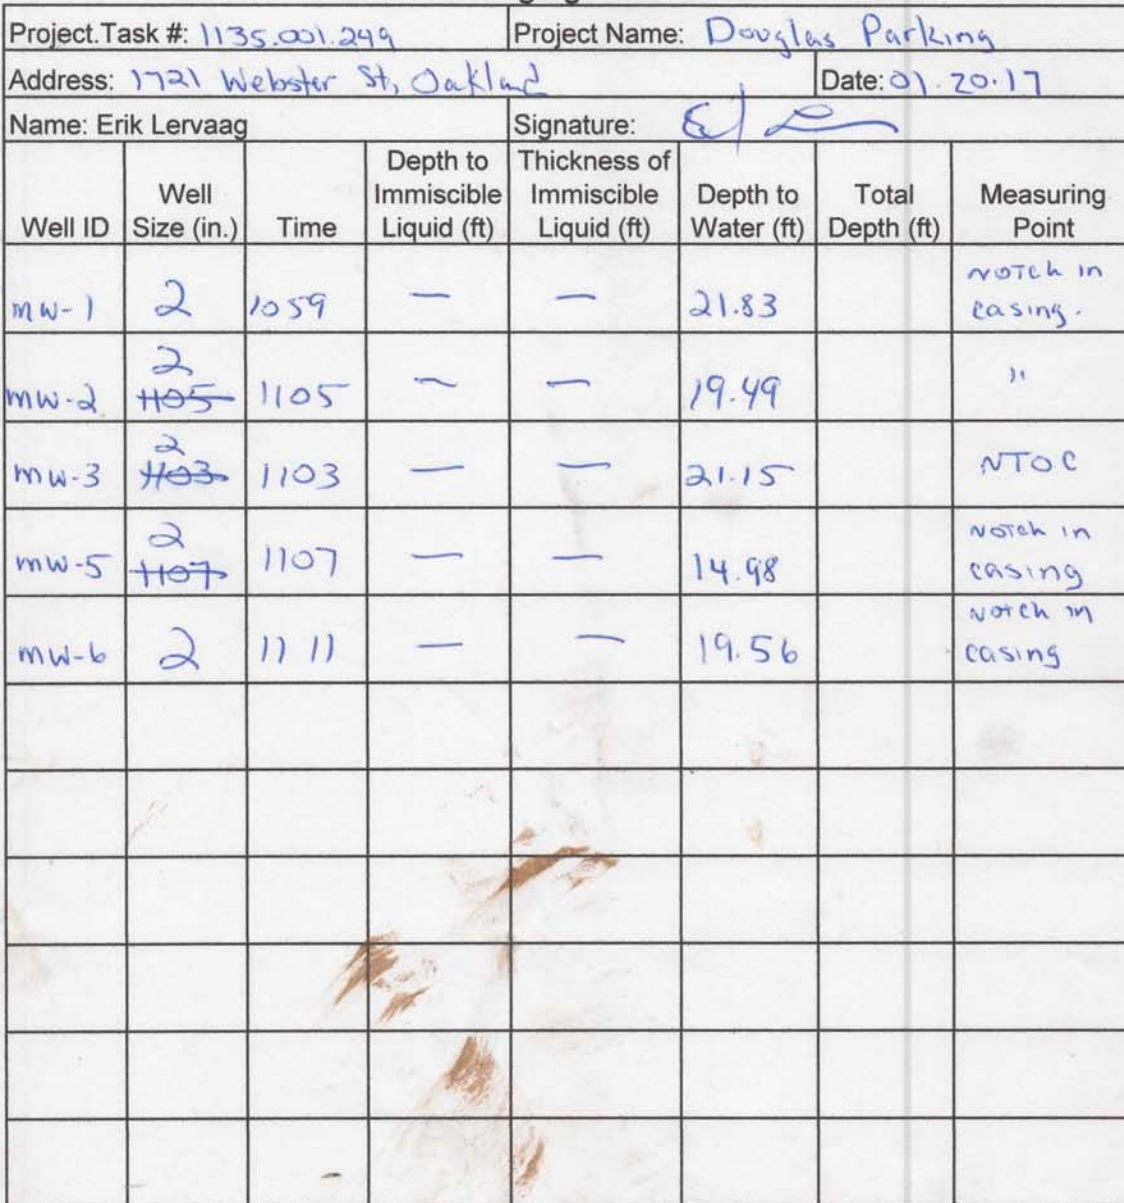 Project.Task #: 1135.001.249 Project Name: Douglas Parking
Address: 1721 Webster St, Oakland Date: 01.20.17
Name: Erik Lervaag Signature:
Well ID Well Size (in.) Time Depth to Immiscible Liquid (ft) Thickness of Immiscible Liquid (ft) Depth to Water (ft) Total Depth (ft) Measuring Point
MW-1 2 1059 — — 21.83 NOTCH in casing.
MW-2 2 1105 1105 — — 19.49 "
MW-3 2 1103 1103 — — 21.15 NTOC
MW-5 2 1107 1107 — — 14.98 NOTCH in casing
MW-6 2 1111 — — 19.56 NOTCH in casing